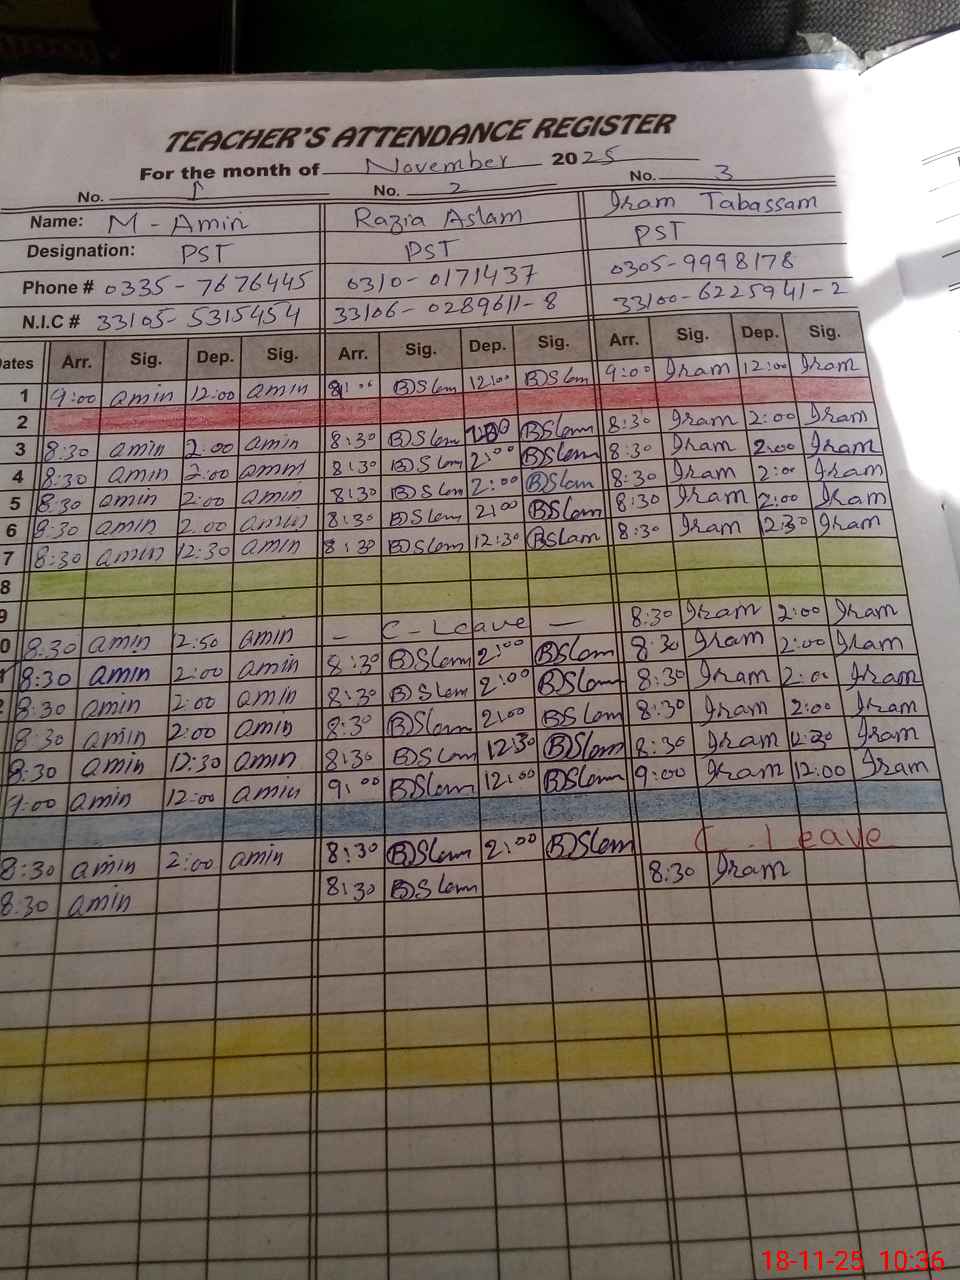 TEACHER'S ATTENDANCE REGISTER
For the month of November 2025
No. 1 No. 2 No. 3
Name: M - Amin Razia Aslam Iram Tabassam
Designation: PST PST PST
Phone # 0335 - 7676445 0310 - 0171437 0305-9998178
N.I.C # 33105- 5315454 33106 - 0289611-8 33100-6225941-2
Dates Arr. Sig. Dep. Sig. Arr. Sig. Dep. Sig. Arr. Sig. Dep. Sig.
1 9:00 amin 12:00 amin BSlam 12:00 BSlam 9:00 Iram 12:00 Iram
2
3 8:30 amin 2:00 amin 8:30 BSlam BSlam 8:30 Iram 2:00 Iram
4 8:30 amin 2:00 amin 8:30 BSlam 2:00 BSlam 8:30 Iram 2:00 Iram
5 8:30 amin 2:00 amin 8:30 BSlam 2:00 BSlam 8:30 Iram 2:00 Iram
6 8:30 amin 2:00 amin 8:30 BSlam 2:00 BSlam 8:30 Iram 2:00 Iram
7 8:30 amin 12:30 amin 8:30 BSlam 12:30 BSlam 8:30 Iram 12:30 Iram
8
9
0 8:30 amin 2:50 amin - C - Leave - 8:30 Iram 2:00 Iram
1 8:30 amin 2:00 amin 8:30 BSlam 2:00 BSlam 8:30 Iram 2:00 Iram
2 8:30 amin 2:00 amin 8:30 BSlam 2:00 BSlam 8:30 Iram 2:00 Iram
8:30 amin 2:00 amin 8:30 BSlam 2:00 BSlam 8:30 Iram 2:00 Iram
8:30 amin 12:30 amin 8:30 BSlam 12:30 BSlam 8:30 Iram 12:30 Iram
9:00 amin 12:00 amin 9:00 BSlam 12:00 BSlam 9:00 Iram 12:00 Iram
8:30 amin 2:00 amin 8:30 BSlam 2:00 BSlam C. Leave
8:30 amin 8:30 BSlam 8:30 Iram
18-11-25 10:36